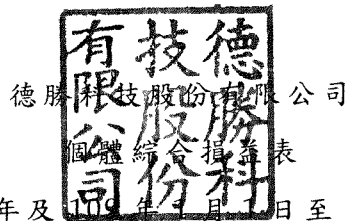 德勝科技股份有限公司
個體綜合損益表
年及 年 月 日至
德勝科
技股份
有限公司